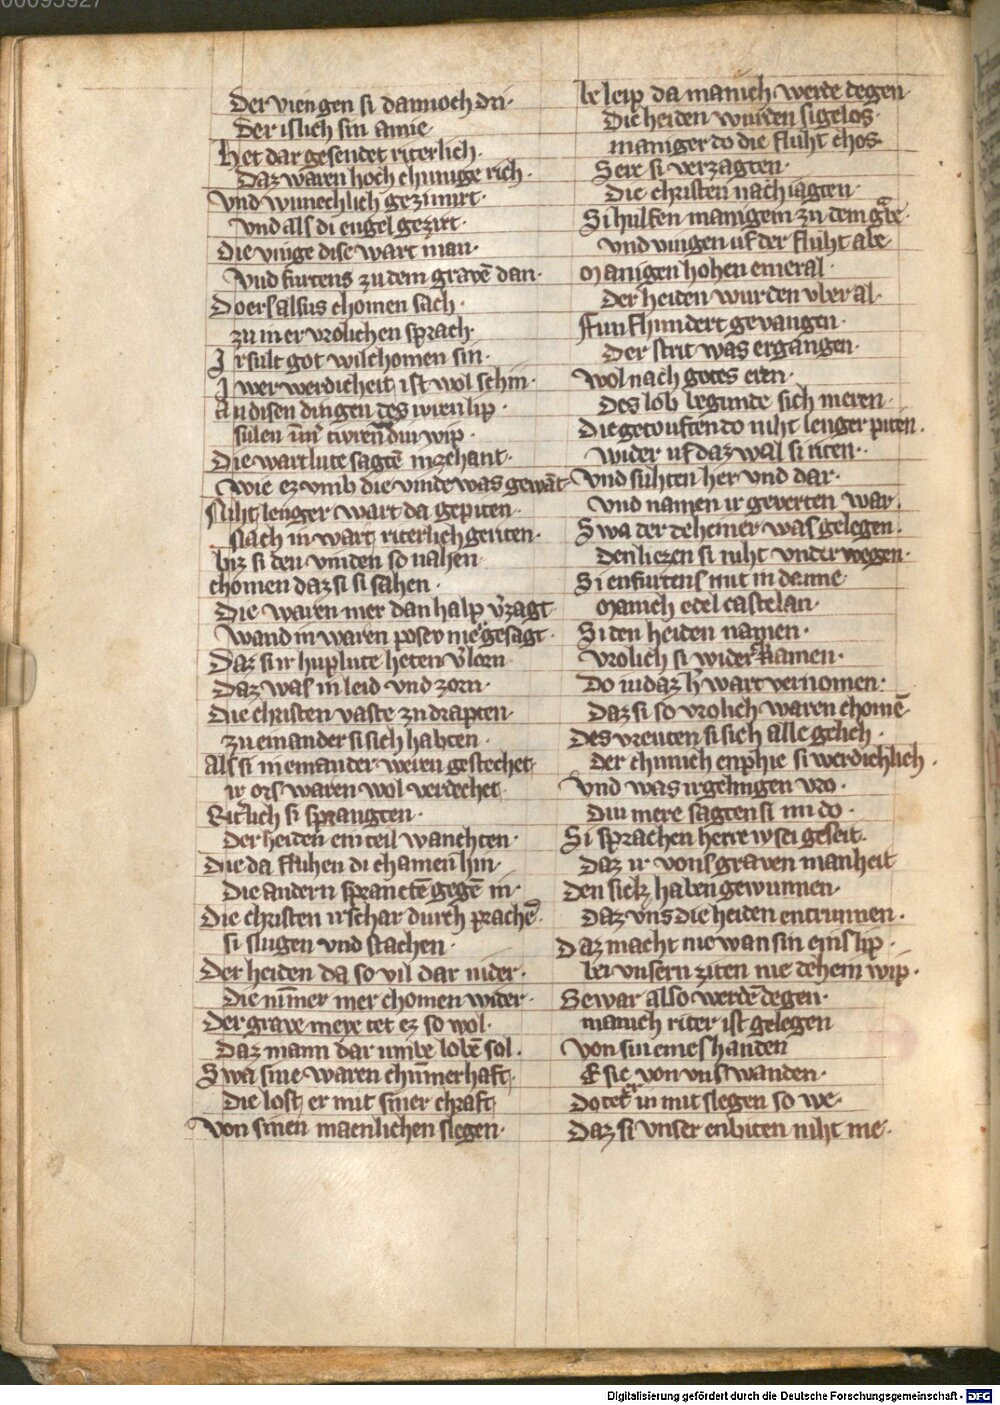 00095927
Der viengen si dannoch dri·
Der islich sin amie
Het dar gesendet riterlich·
Daz waren hoch chunige rich·
Vnd wunechlich gezimirt·
Vnd als di engel gezirt·
Die vinge dise wart man·
Vnd furtens zu dem gravē dan·
Do er salsus chomen sach·
zu in er vrolichen sprach·
Ir sult got wilchomen sin·
Iwer werdicheit ist wol schin·
An disen dingen des iwren lip·
sulen im̄ tiwren diu wip·
Die wartlute sagtē inzehant·
wie ez vmb die vinde was gewāt·
Niht lenger wart da gepiten·
Nach in wart riterlich geriten·
biz si den vinden so nahen
chomen daz si si sahen·
Die waren mer dan halp v̄zagt
Wand in waren posev mer gesagt·
Daz si ir huplute heten v̄lorn
Daz was in leid vnd zorn·
Die christen vaste zu drapten·
zu einander si sich habten·
Als si in einander weren gestechet·
ir ors waren wol verdechet·
Rit̄lich si sprangten·
Der heiden ein teil wanchten·
Die da fluhen di chamen hin·
Die andern spranctē gegē in·
Die christen ir schar durch prachē·
si slugen vnd stachen·
Der heiden da so vil dar nider·
Die nim̄mer mer chomen wider·
Der grave meye tet ez so wol·
Daz mann dar umbe lobē sol·
Swa sine waren chum̄merhaft·
Die lost er mit siner chraft·
Von sinen maenlichen slegen·
beleip da manich werde degen·
Die heiden wurden sigelos·
maniger do die fluht chos·
Sere si verzagten·
Die christen nach iagten·
Si hulfen manigem zu dem grabe·
vnd viengen uf der fluht abe·
Manigen hohen emeral·
Der heiden wurden vber al·
Funfhundert gevangen·
Der strit was ergangen·
wol nach gotes eren·
Des lob begunde sich meren·
Die getouften do niht lenger piten·
wider uf daz wal si riten·
Vnd suhten her vnd dar·
Vnd namen ir geverten war·
Swa der deheiner was gelegen·
Den liezen si niht vnder wegen·
Si enfurtens mit in danne
Manich edel castelan·
Si den heiden namen·
vrolich si wider chamen·
Do iu daz h̄ wart vernomen·
Daz si so vrolich waren chomē·
Des vreuten si sich alle gelich·
der chunich enphie si werdichlich·
Vnd was ir gelingen vro·
Diu mere sagten si im do·
Si sprachen herre iv sei geseit·
Daz ir vons graven manheit
Den sick haben gewunnen·
Daz vns die heiden entrunnen·
Daz macht nie wan sin eins lip·
bei vnsern ziten nie dehein wip·
Gewar also werdē degen·
manich riter ist gelegen
Von sin eines handen
E sie von vns wanden·
Do tet er in mit slegen so we·
Daz si vnser enbiten niht me·
Digitalisierung gefördert durch die Deutsche Forschungsgemeinschaft - DFG